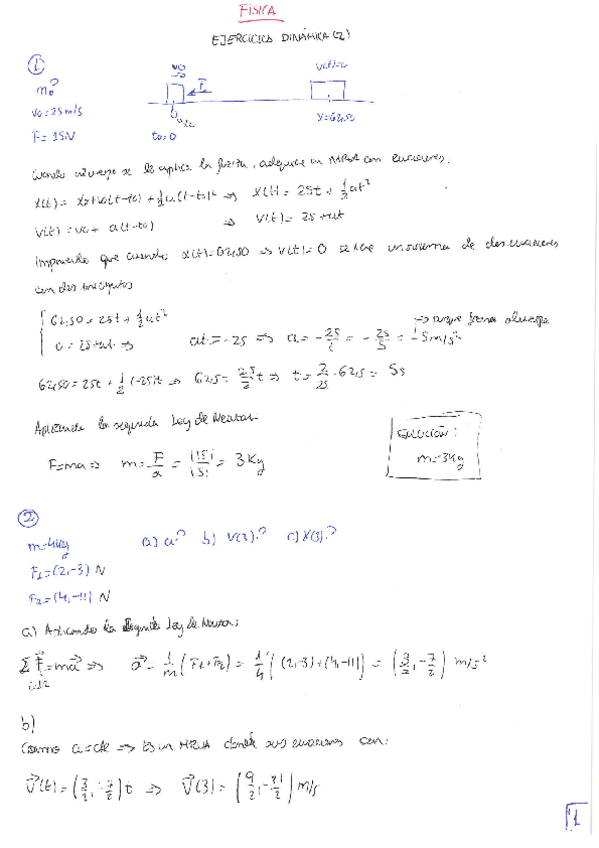 FÍSICA
EJERCICIOS DINÁMICA (2)
1
m?
v0
F
V(t)=0
v0=25m/s
x0
X=62,50
F=15N
t0=0
Cuando al cuerpo se le aplica la fuerza, adquiere un MRUA con ecuaciones.
X(t) = x0+v0(t-t0) + 1/2 a(t-t0)² => X(t) = 25t + 1/2 at²
V(t) = v0 + a(t-t0) => V(t) = 25+at
Imponiendo que cuando x(t)=62,50 => V(t)=0 se tiene un sistema de dos ecuaciones
con dos incógnitas
62,50 = 25t + 1/2 at²
0 = 25+at => at = -25 => a = -25/t = -25/5 = -5m/s²
-> porque frena al cuerpo
62,50 = 25t + 1/2 (-25)t => 62,5 = 25/2 t => t = 2/25 · 62,5 = 5s
Aplicando la segunda Ley de Newton
F=ma => m = F/a = |15|/|5| = 3Kg
SOLUCIÓN:
m=3Kg
2
m=4kg a) a? b) V(3)? c) X(3)?
F1=(2,-3) N
F2=(4,-11) N
a) Aplicando la segunda Ley de Newton:
Σ F = ma => a = 1/m (F1+F2) = 1/4 ((2,-3)+(4,-11)) = (3/2, -7/2) m/s²
i=1,2
b)
Como a=cte => Es un MRUA donde sus ecuaciones son:
V(t) = (3/2, -7/2) t => V(3) = (9/2, -21/2) m/s
1